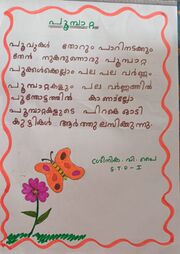 പൂമ്പാറ്റ
പൂവുകൾ തോറും പാറിനടക്കും
തേൻ നുകരുന്നൊരു പൂമ്പാറ്റ
പൂക്കൾക്കെല്ലാം പല പല വർണ്ണം
പൂമ്പാറ്റകളും പല വർണ്ണത്തിൽ
പൂന്തോട്ടത്തിൽ കാണാല്ലോ
പൂമ്പാറ്റകളുടെ പിറകെ ഓടി
കുട്ടികൾ ആർത്തുല്ലസിക്കുന്നു.
വി. പൈ
STD - I